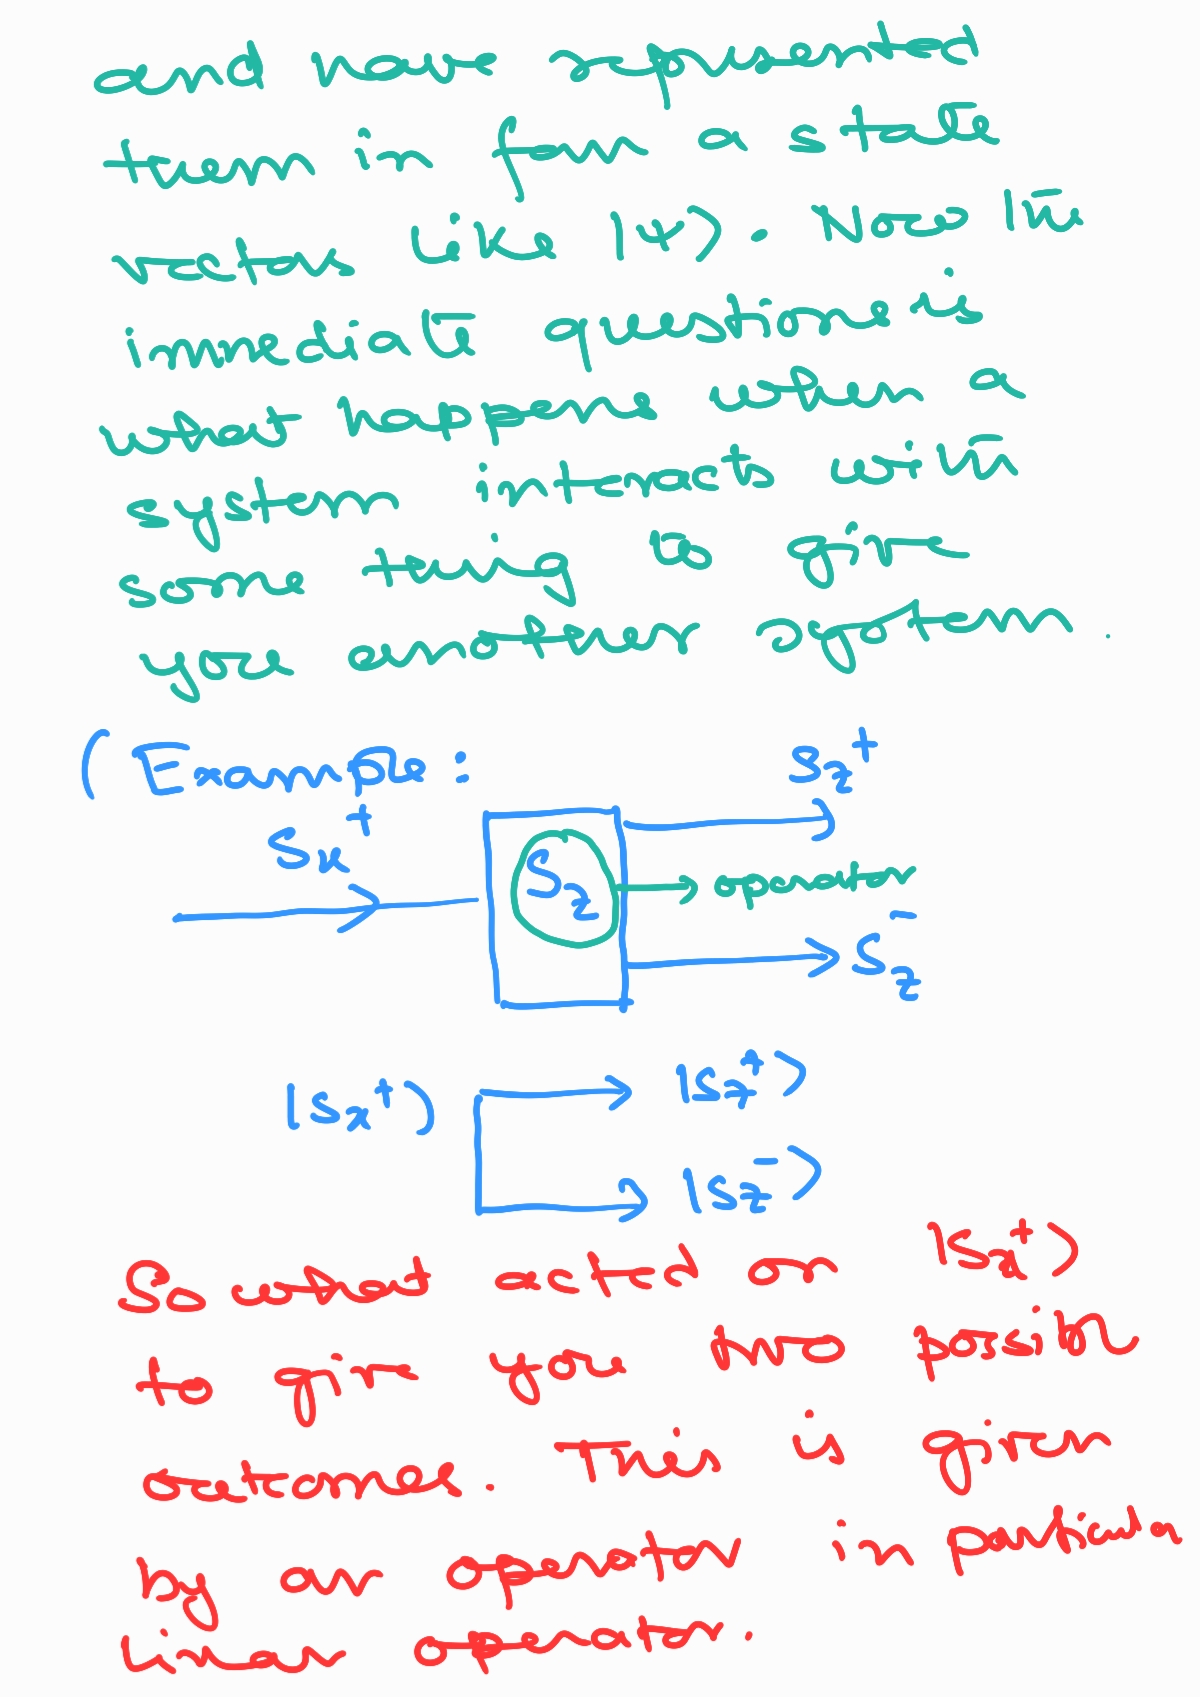 and have represented
them in form a state
vectors like |ψ⟩. Now the
immediate question is
what happens when a
system interacts with
some thing to give
you another system.
(Example:
Sz⁺
Sx⁺
Sz → operator
Sz⁻
|Sx⁺⟩ |Sz⁺⟩
|Sz⁻⟩
So what acted on |Sx⁺⟩
to give you two possible
outcomes. This is given
by an operator in particular
linear operator.